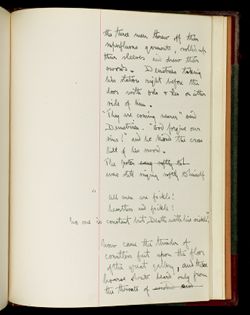 the three men threw off their
superfluous garments, rolled up
their sleeves and drew their
swords. Demetrius looking
like statues right before the
door with one on either
side of him.
"They are coming nearer" said
Demetrius. "God forgive our
sins!" and he kissed the cross
hilt of his sword.
The poet
was still singing softly to himself
All men are fickle!
and fickle!
No one is constant but Death with his sickle,
Now came the thunder of
countless feet upon the floor
of the great gallery, and
hoarse shouts heard only from
the throats of